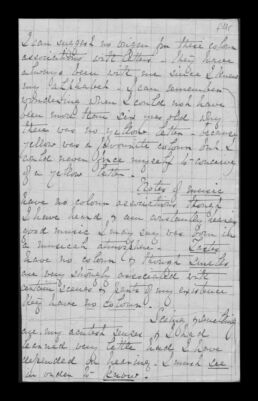 I can suggest no origin for these colour
associations with letters - they have
always been with me since I knew
my alphabet - I can remember
wondering when I could not have
been more than six years old why
there was no yellow letter - because
yellow was a favourite colour but I
could never force myself to conceive
of a yellow letter -
Notes of music
have no colour associations though
I have heard & am constantly hearing
good music I may say was born in
a musical atmosphere - Tastes
have no colour & though smells
are very strongly associated with
certain scenes & parts of my existence
they have no colour.
Seeing & hearing
are my acutest senses & I had
learned very little had I have
depended on hearing - I must see
in order to know.